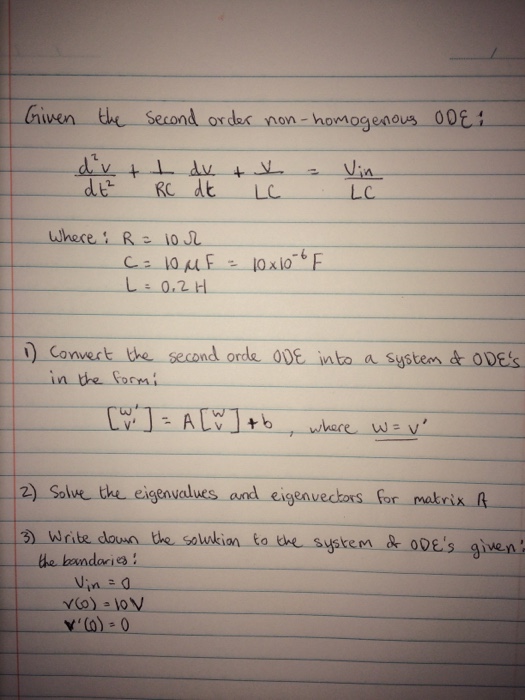 Given the second order non-homogenous ODE:
d²v/dt² + 1/RC dv/dt + v/LC = Vin/LC
Where: R = 10 Ω
C = 10 μF = 10x10⁻⁶ F
L = 0.2 H
1) Convert the second orde ODE into a system of ODE's
in the form:
[w' v'] = A [w v] + b, where w = v'
2) Solve the eigenvalues and eigenvectors for matrix A
3) Write down the solution to the system of ODE's given:
the bandaries:
Vin = 0
v(0) = 10V
v'(0) = 0